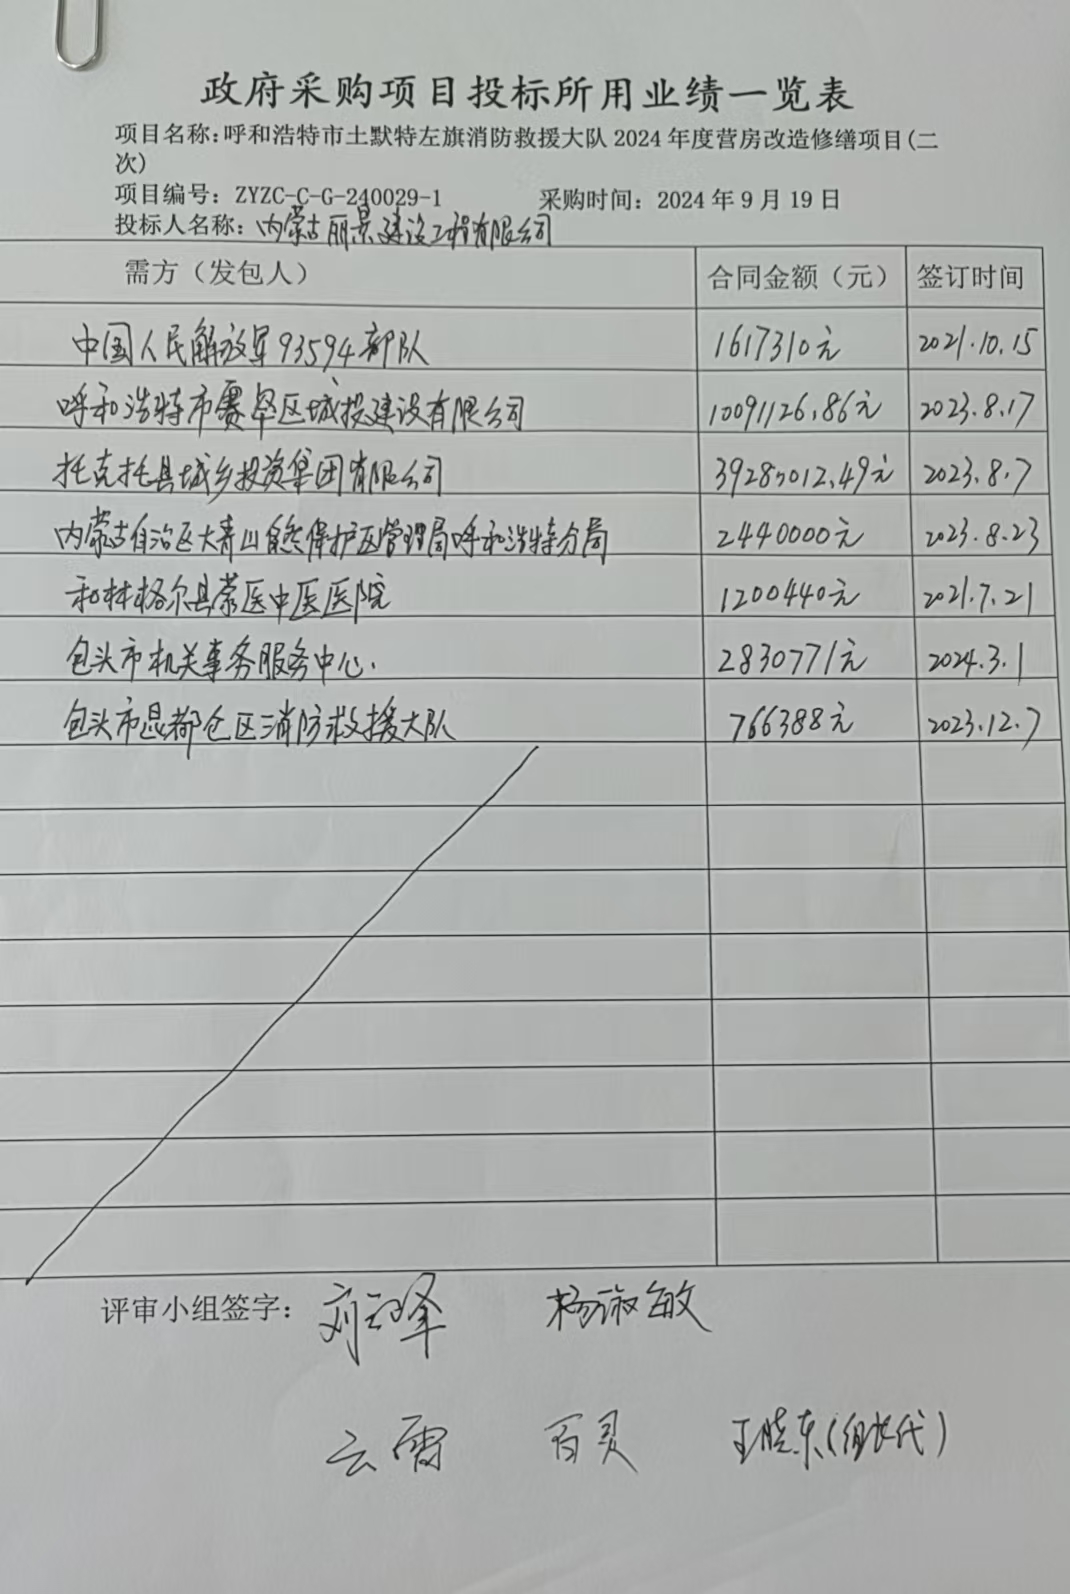 政府采购项目投标所用业绩一览表
项目名称:呼和浩特市土默特左旗消防救援大队2024年度营房改造修缮项目(二
次)
项目编号: ZYZC-C-G-240029-1 采购时间: 2024年9月19日
投标人名称: 内蒙古丽景建设工程有限公司
需方（发包人） 合同金额（元） 签订时间
中国人民解放军93594部队 1617310元 2021.10.15
呼和浩特市赛罕区城投建设有限公司 10091126.86元 2023.8.17
托克托县城乡投资集团有限公司 2023.8.7
内蒙古自治区大青山自然保护区管理局呼和浩特分局 2440000元 2023.8.23
和林格尔县蒙医中医医院 1200440元 2021.7.21
包头市机关事务服务中心. 2830771元 2024.3.1
包头市昆都仑区消防救援大队 766388元 2023.12.7
评审小组签字: 杨淑敏
云雷 百灵 王晓东(组长代)